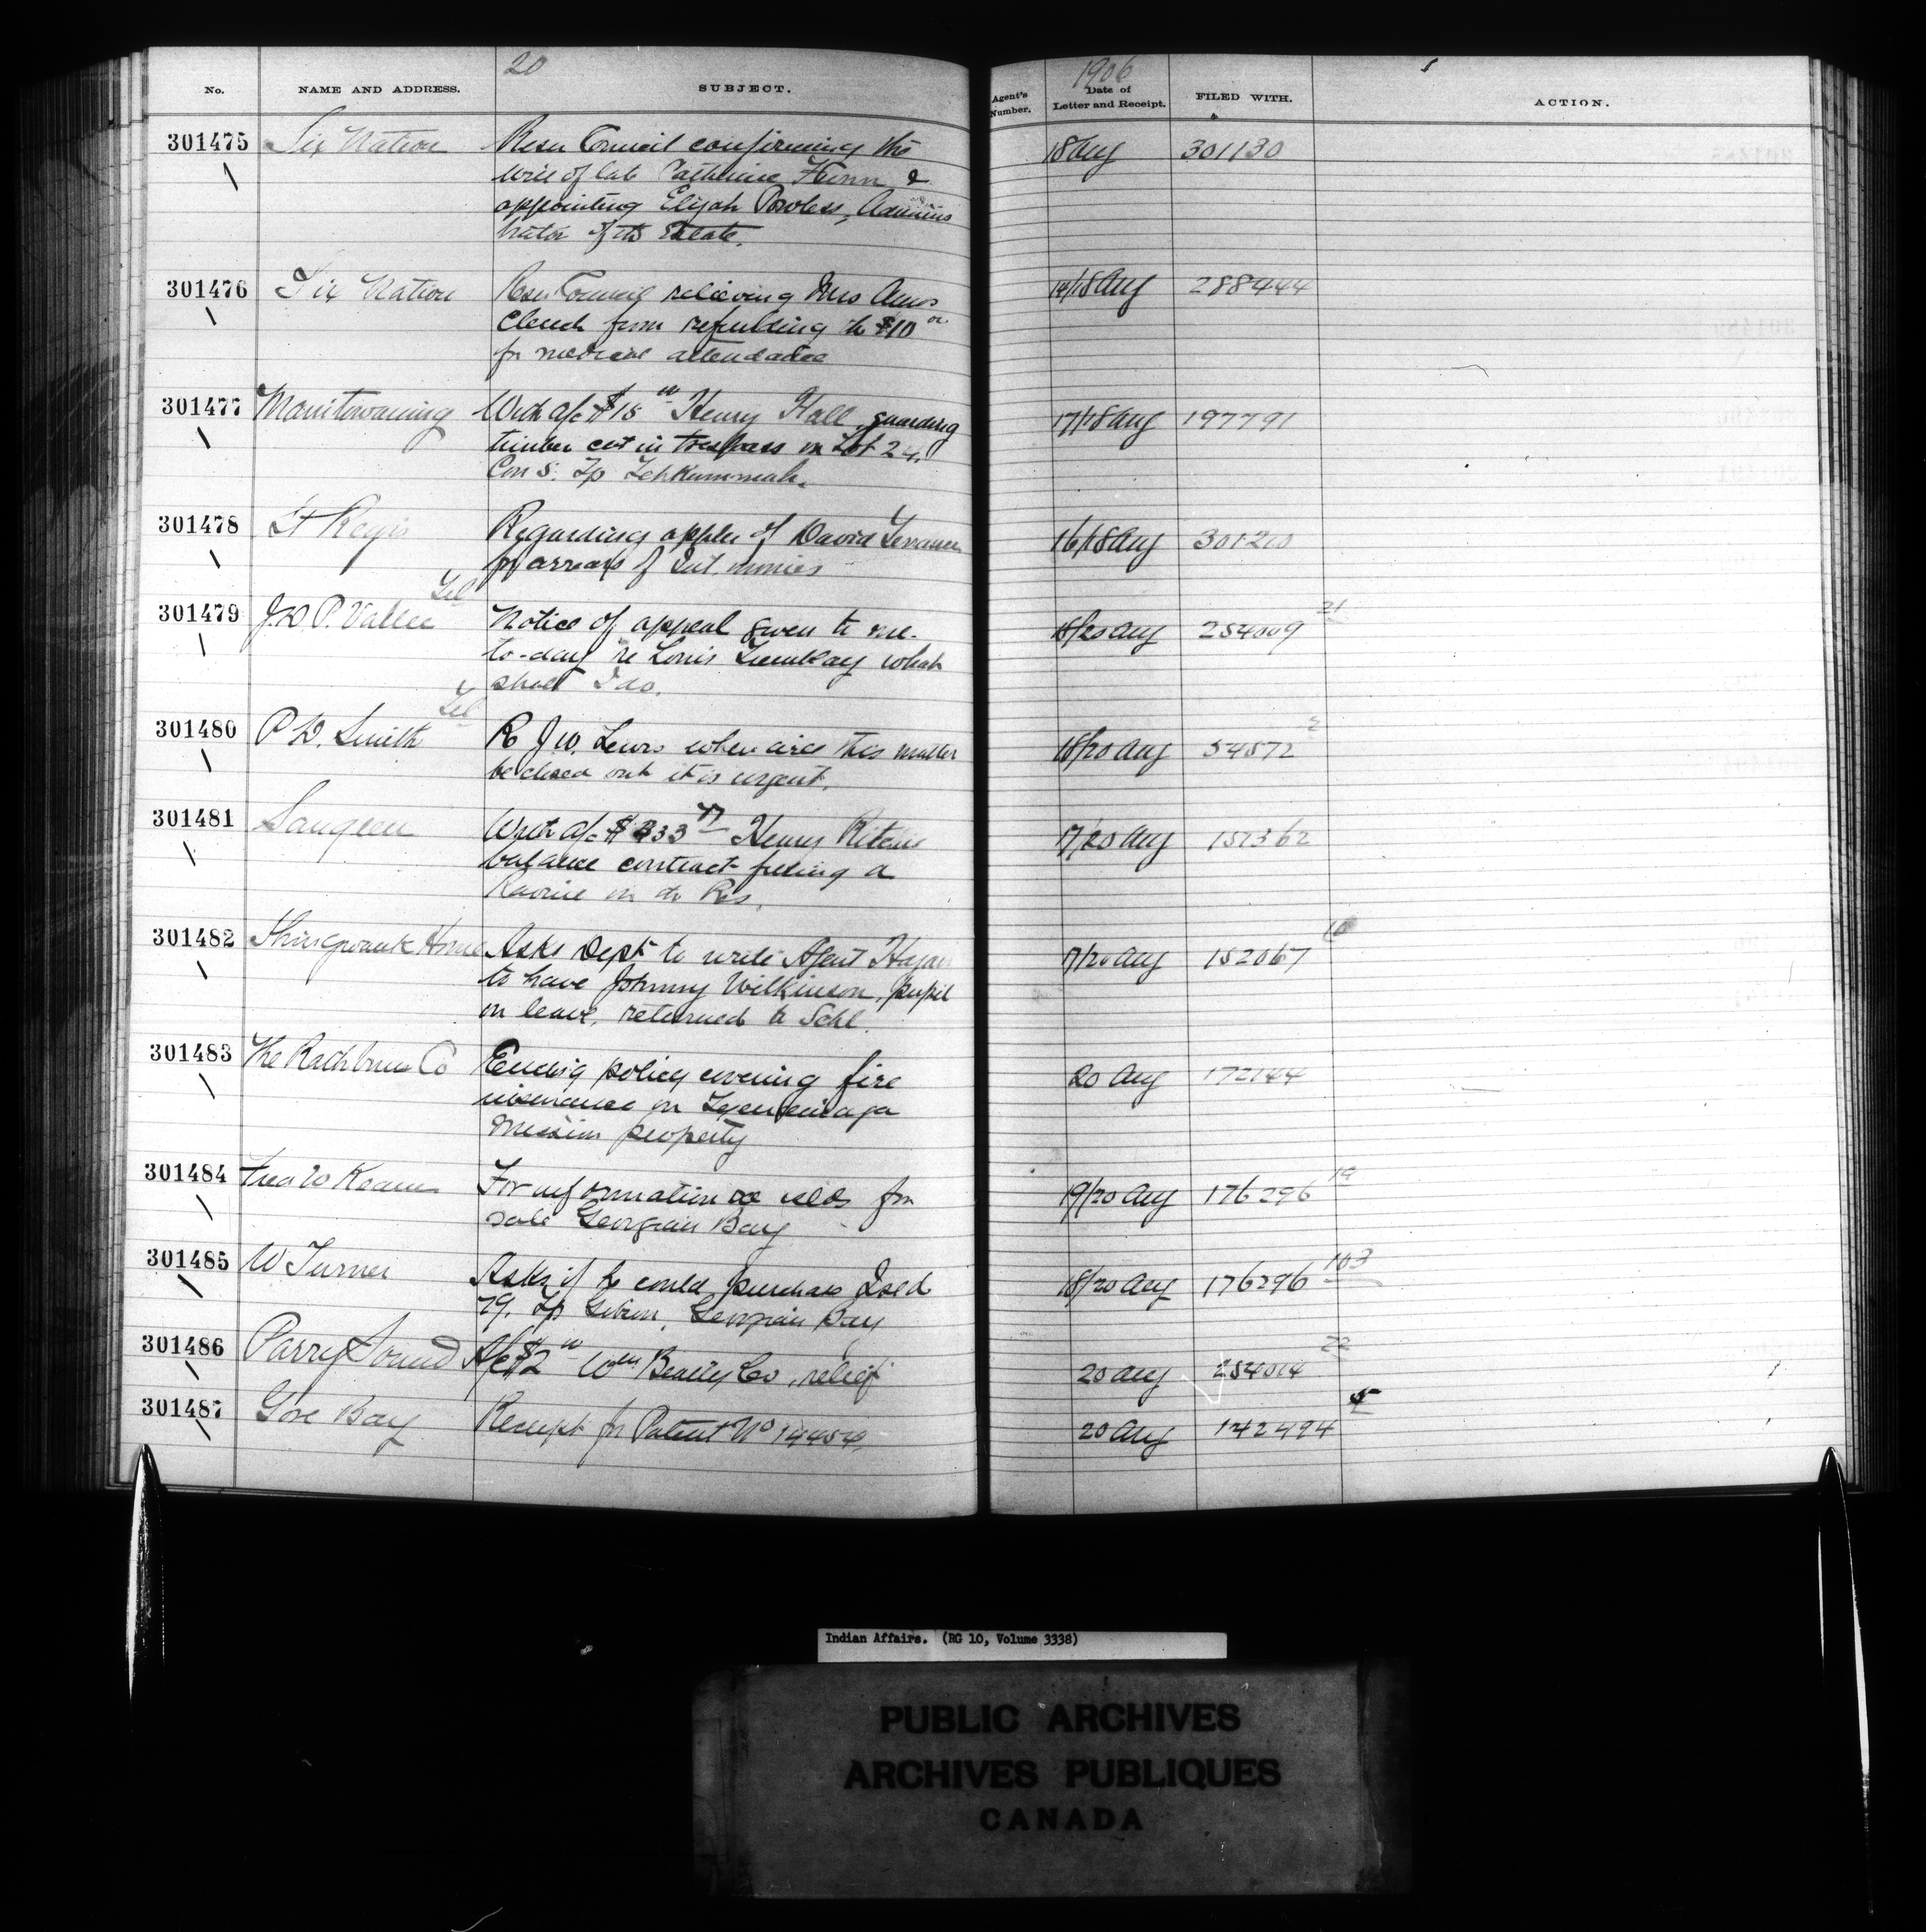 20
1906
No. NAME AND ADDRESS. SUBJECT. Agent's Number. Date of Letter and Receipt. FILED WITH. ACTION.
301475 Six Nation Resn Council confirming the 18 Aug 301130
will of late Catherine &
appointing Elijah Powless, Adminis
trator of its Estate.
301476 Six Nation Resn Council relieving Mrs Amos 14/18 Aug 288444
Clench from refunding the $10
for medical attendance
301477 Manitowaning With a/c $15 00 Henry Hall, guarding 17/18 Aug 197791
timber cut in trespass on Lot 24,
Con 5. Tp Tehkummah.
301478 St Regis Regarding appln of David 16/18 Aug 301210
for arrears of Int. monies
301479 J.D.P. Vallee Tel Notice of appeal given to me 18/20 Aug 254009 21
to-day re Louis Tremblay what
shall I do.
301480 P D. Smith Tel Re J.W. Lewis when will this matter 18/20 Aug 54572 2
be closed out it is urgent.
301481 Saugeen With a/c $333 77 Henry Ritchie 17/20 Aug 151362
balance contract filling a
Ravine on the Res.
301482 Shingwauk Home Asks Dept to write Agent Hagan 17/20 Aug 152067 10
to have Johnny Wilkinson, pupil
on leave, returned to Schl.
301483 The Rathbun Co Enclosing policy covering fire 20 Aug 172144
insurance on Tyendinaga
Mission property
301484 For information re islds for 19/20 Aug 176296 19
sale Georgian Bay
301485 W Turner Asks if he could purchase Isld 18/20 Aug 176296 103
79, Tp Gibson, Georgian Bay
301486 Parry Sound A/c $2 00 Wm Beatty Co, relief 20 Aug 254014 22
301487 Gore Bay Receipt for Patent No 14454. 20 Aug 142494 5
Indian Affairs. (RG 10, Volume 3338)
PUBLIC ARCHIVES
ARCHIVES PUBLIQUES
CANADA